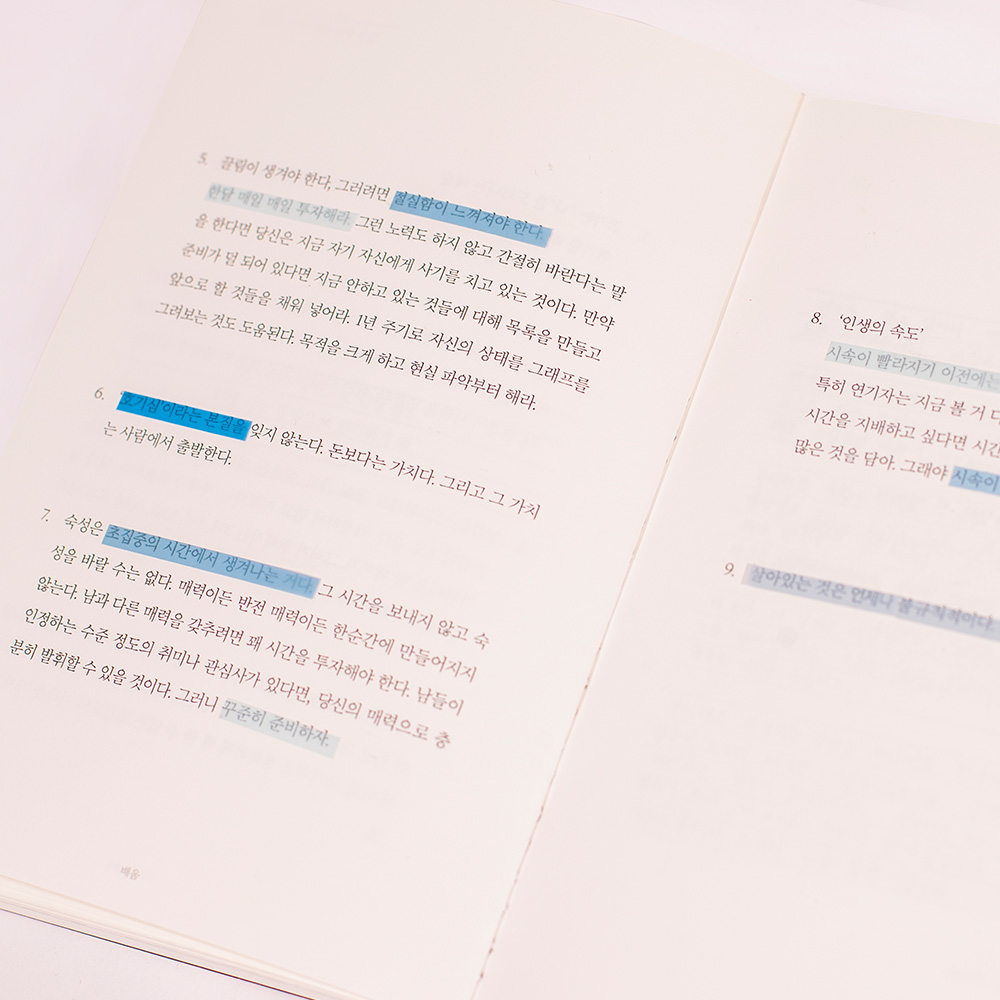 5. 끌림이 생겨야 한다, 그러려면 절실함이 느껴져야 한다.
한달 매일 매일 투자해라. 그런 노력도 하지 않고 간절히 바란다는 말
을 한다면 당신은 지금 자기 자신에게 사기를 치고 있는 것이다. 만약
준비가 덜 되어 있다면 지금 안하고 있는 것들에 대해 목록을 만들고
앞으로 할 것들을 채워 넣어라. 1년 주기로 자신의 상태를 그래프를
그려보는 것도 도움된다. 목적을 크게 하고 현실 파악부터 해라.
6. '호기심'이라는 본질을 잊지 않는다. 돈보다는 가치다. 그리고 그 가치
는 사람에서 출발한다.
7. 숙성은 초집중의 시간에서 생겨나는 거다. 그 시간을 보내지 않고 숙
성을 바랄 수는 없다. 매력이든 반전 매력이든 한순간에 만들어지지
않는다. 남과 다른 매력을 갖추려면 꽤 시간을 투자해야 한다. 남들이
인정하는 수준 정도의 취미나 관심사가 있다면, 당신의 매력으로 충
분히 발휘할 수 있을 것이다. 그러니 꾸준히 준비하자.
배움
8. '인생의 속도'
시속이 빨라지기 이전에는
특히 연기자는 지금 볼 거 다
시간을 지배하고 싶다면 시간
많은 것을 담아. 그래야 시속이
9. 살아있는 것은 언제나 불규칙적이다.